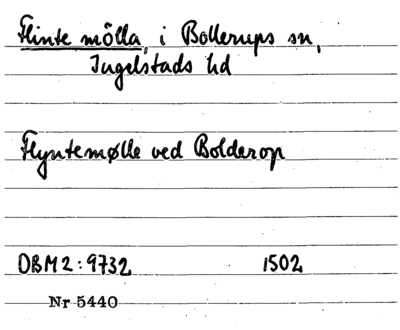 Flinte mölla, i Bollerups sn,
Ingelstads hd
Flyntemølle ved Bolderop
DBM2:9732 1502
Nr 5440